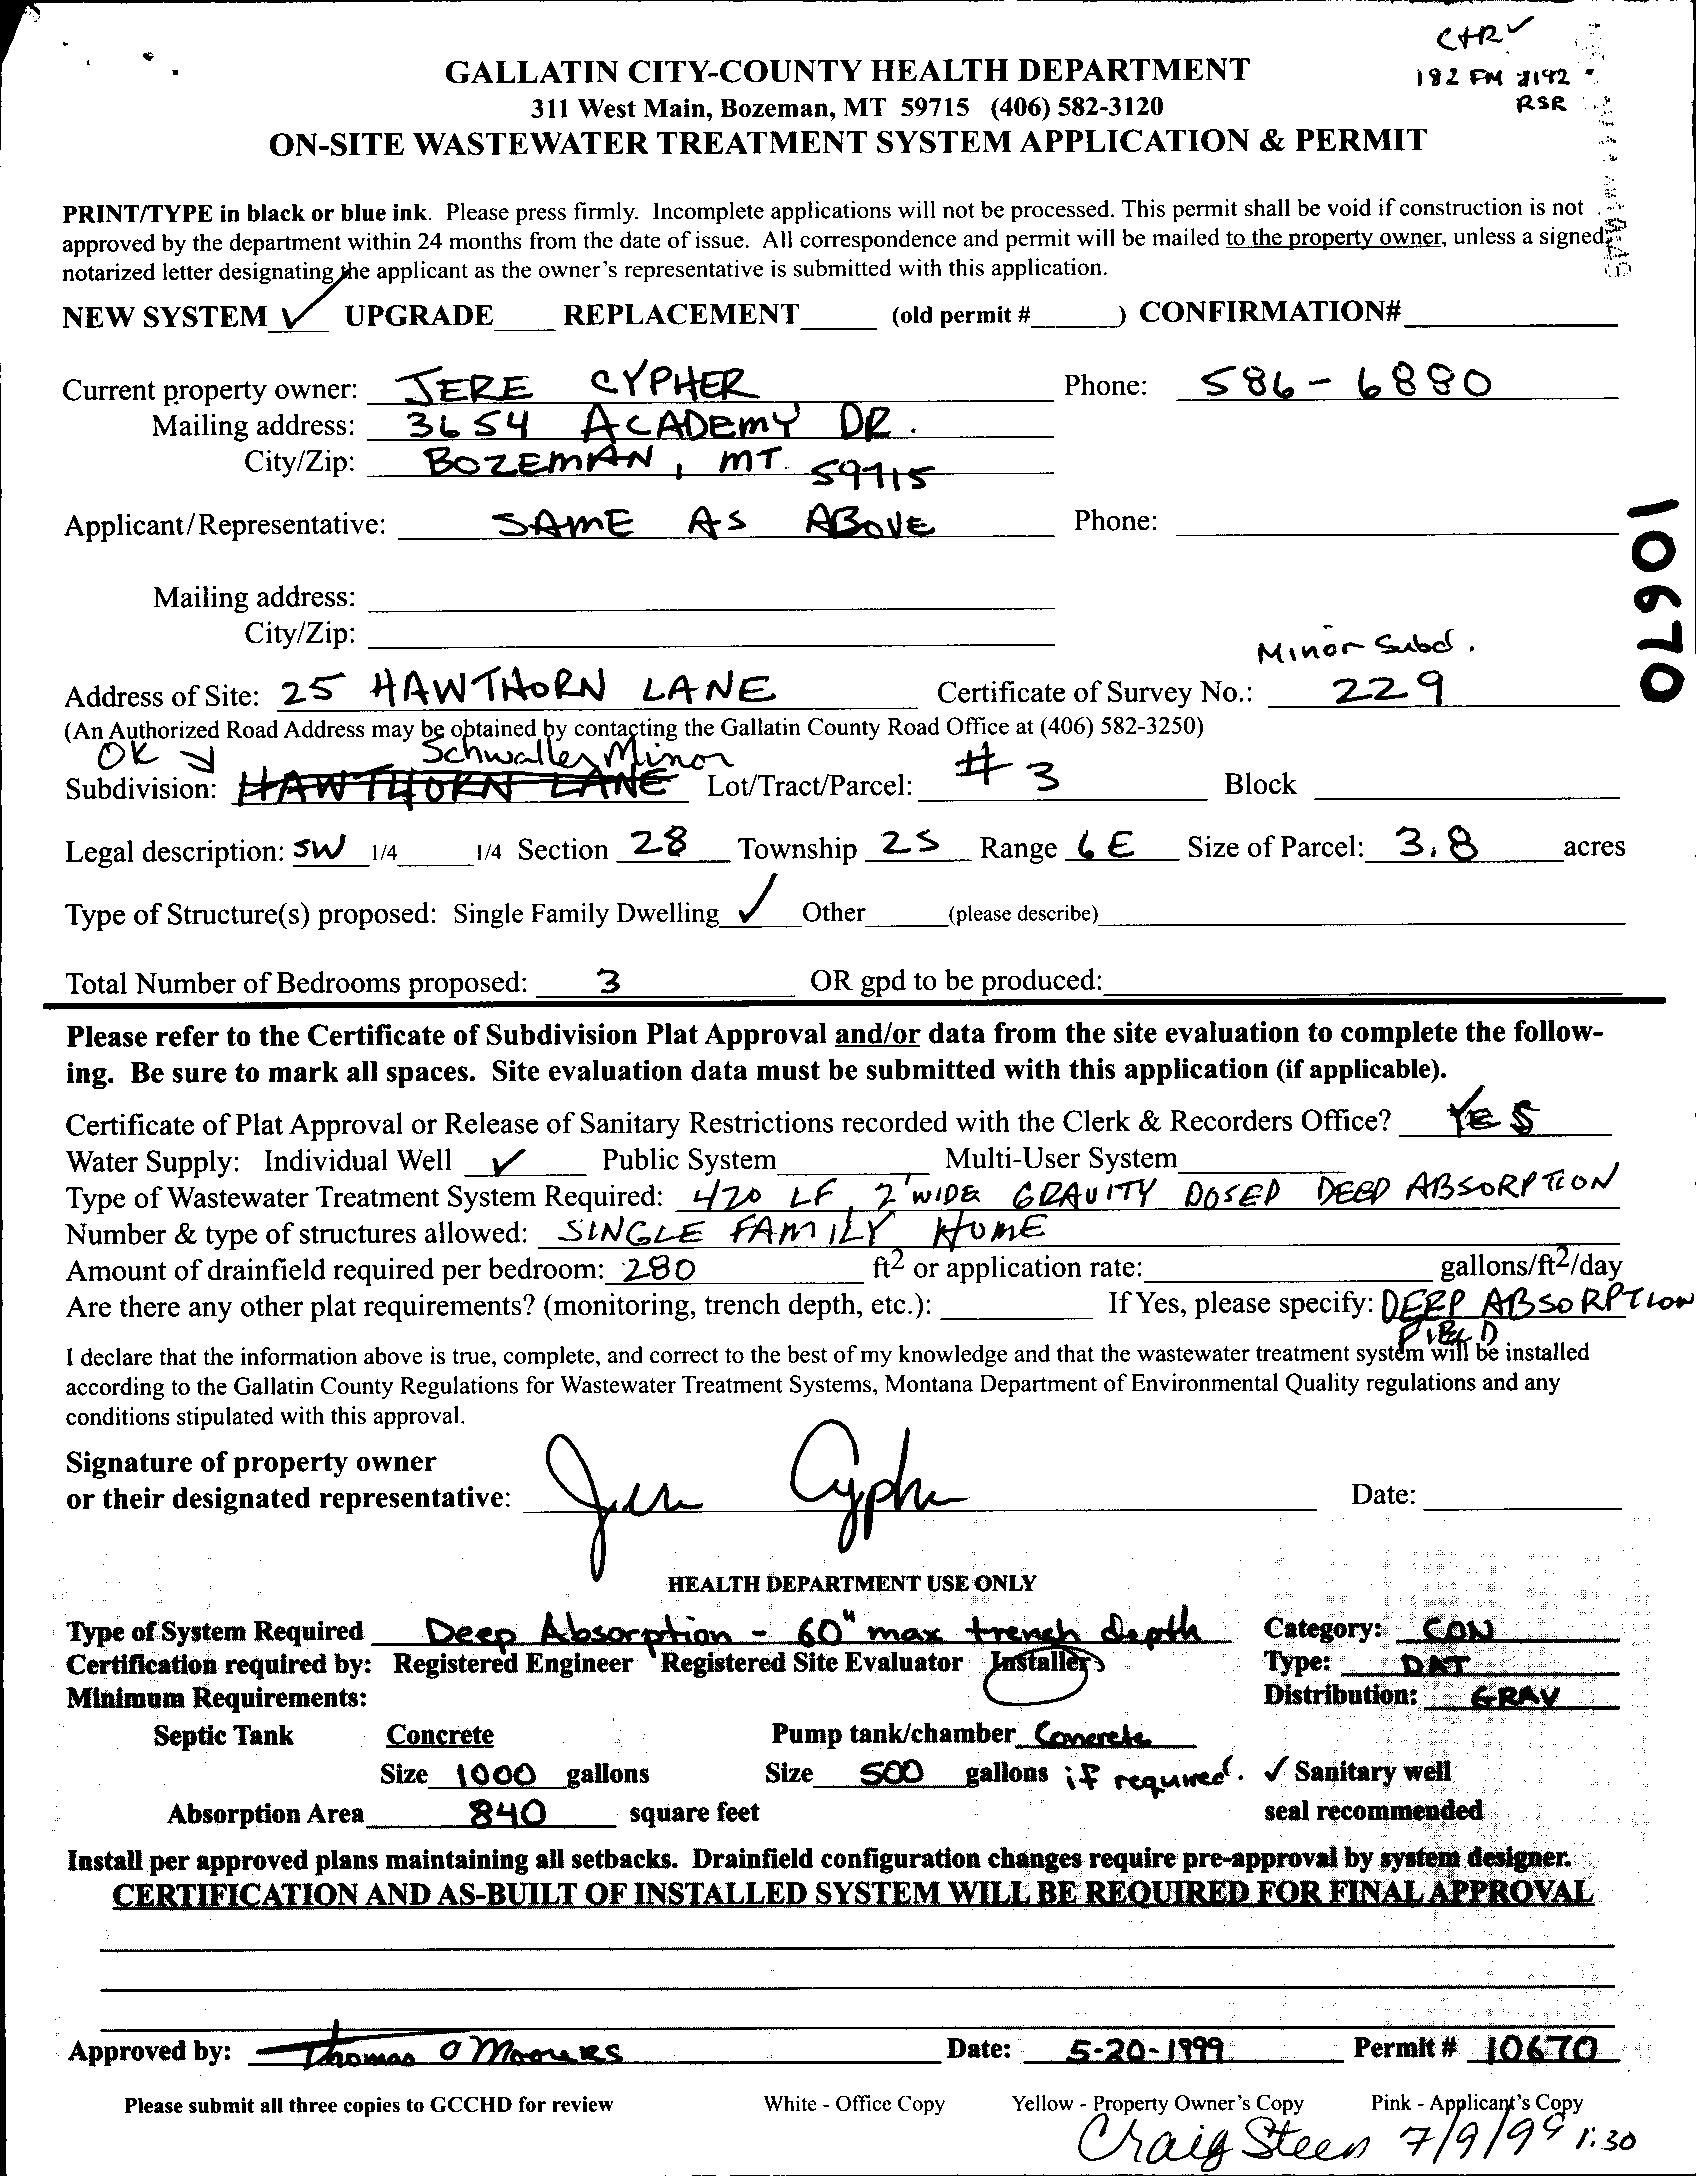 CtR✓
182 FM 2192
RSR
GALLATIN CITY-COUNTY HEALTH DEPARTMENT
311 West Main, Bozeman, MT 59715 (406) 582-3120
ON-SITE WASTEWATER TREATMENT SYSTEM APPLICATION & PERMIT
PRINT/TYPE in black or blue ink. Please press firmly. Incomplete applications will not be processed. This permit shall be void if construction is not
approved by the department within 24 months from the date of issue. All correspondence and permit will be mailed to the property owner, unless a signed,
notarized letter designating the applicant as the owner's representative is submitted with this application.
NEW SYSTEM ✓ UPGRADE____ REPLACEMENT_____ (old permit #______) CONFIRMATION#
Current property owner: JERE CYPHER Phone: 586-6880
Mailing address: 3654 ACADEMY DR.
City/Zip: BOZEMAN, MT. 59715
Applicant/Representative: SAME AS ABOVE Phone:
10670
Mailing address:
City/Zip:
Minor Subd.
Address of Site: 25 HAWTHORN LANE Certificate of Survey No.: 229
(An Authorized Road Address may be obtained by contacting the Gallatin County Road Office at (406) 582-3250)
OK Schwaller Minor
Subdivision: HAWTHORN LANE Lot/Tract/Parcel: #3 Block
Legal description: SW 1/4 1/4 Section 28 Township 2S Range 6E Size of Parcel: 3.8 acres
Type of Structure(s) proposed: Single Family Dwelling ✓ Other (please describe)
Total Number of Bedrooms proposed: 3 OR gpd to be produced:
Please refer to the Certificate of Subdivision Plat Approval and/or data from the site evaluation to complete the follow-
ing. Be sure to mark all spaces. Site evaluation data must be submitted with this application (if applicable).
Certificate of Plat Approval or Release of Sanitary Restrictions recorded with the Clerk & Recorders Office? YES
Water Supply: Individual Well ✓ Public System Multi-User System
Type of Wastewater Treatment System Required: 420 LF, 2' WIDE GRAVITY DOSED DEEP ABSORPTION
Number & type of structures allowed: SINGLE FAMILY HOME
Amount of drainfield required per bedroom: 280 ft2 or application rate: gallons/ft2/day
Are there any other plat requirements? (monitoring, trench depth, etc.): If Yes, please specify: DEEP ABSORPTION
FIELD
I declare that the information above is true, complete, and correct to the best of my knowledge and that the wastewater treatment system will be installed
according to the Gallatin County Regulations for Wastewater Treatment Systems, Montana Department of Environmental Quality regulations and any
conditions stipulated with this approval.
Signature of property owner
or their designated representative: Jere Cypher Date:
HEALTH DEPARTMENT USE ONLY
Type of System Required Deep Absorption - 60" max trench depth Category: CON
Certification required by: Registered Engineer Registered Site Evaluator Installer Type: DAT
Minimum Requirements: Distribution: GRAV
Septic Tank Concrete Pump tank/chamber Concrete
Size 1000 gallons Size 500 gallons if required. ✓ Sanitary well
Absorption Area 840 square feet seal recommended
Install per approved plans maintaining all setbacks. Drainfield configuration changes require pre-approval by system designer.
CERTIFICATION AND AS-BUILT OF INSTALLED SYSTEM WILL BE REQUIRED FOR FINAL APPROVAL
Approved by: Thomas O Moore RS Date: 5-20-1999 Permit # 10670
Please submit all three copies to GCCHD for review White - Office Copy Yellow - Property Owner's Copy Pink - Applicant's Copy
Craig Steen 7/9/99 1:30